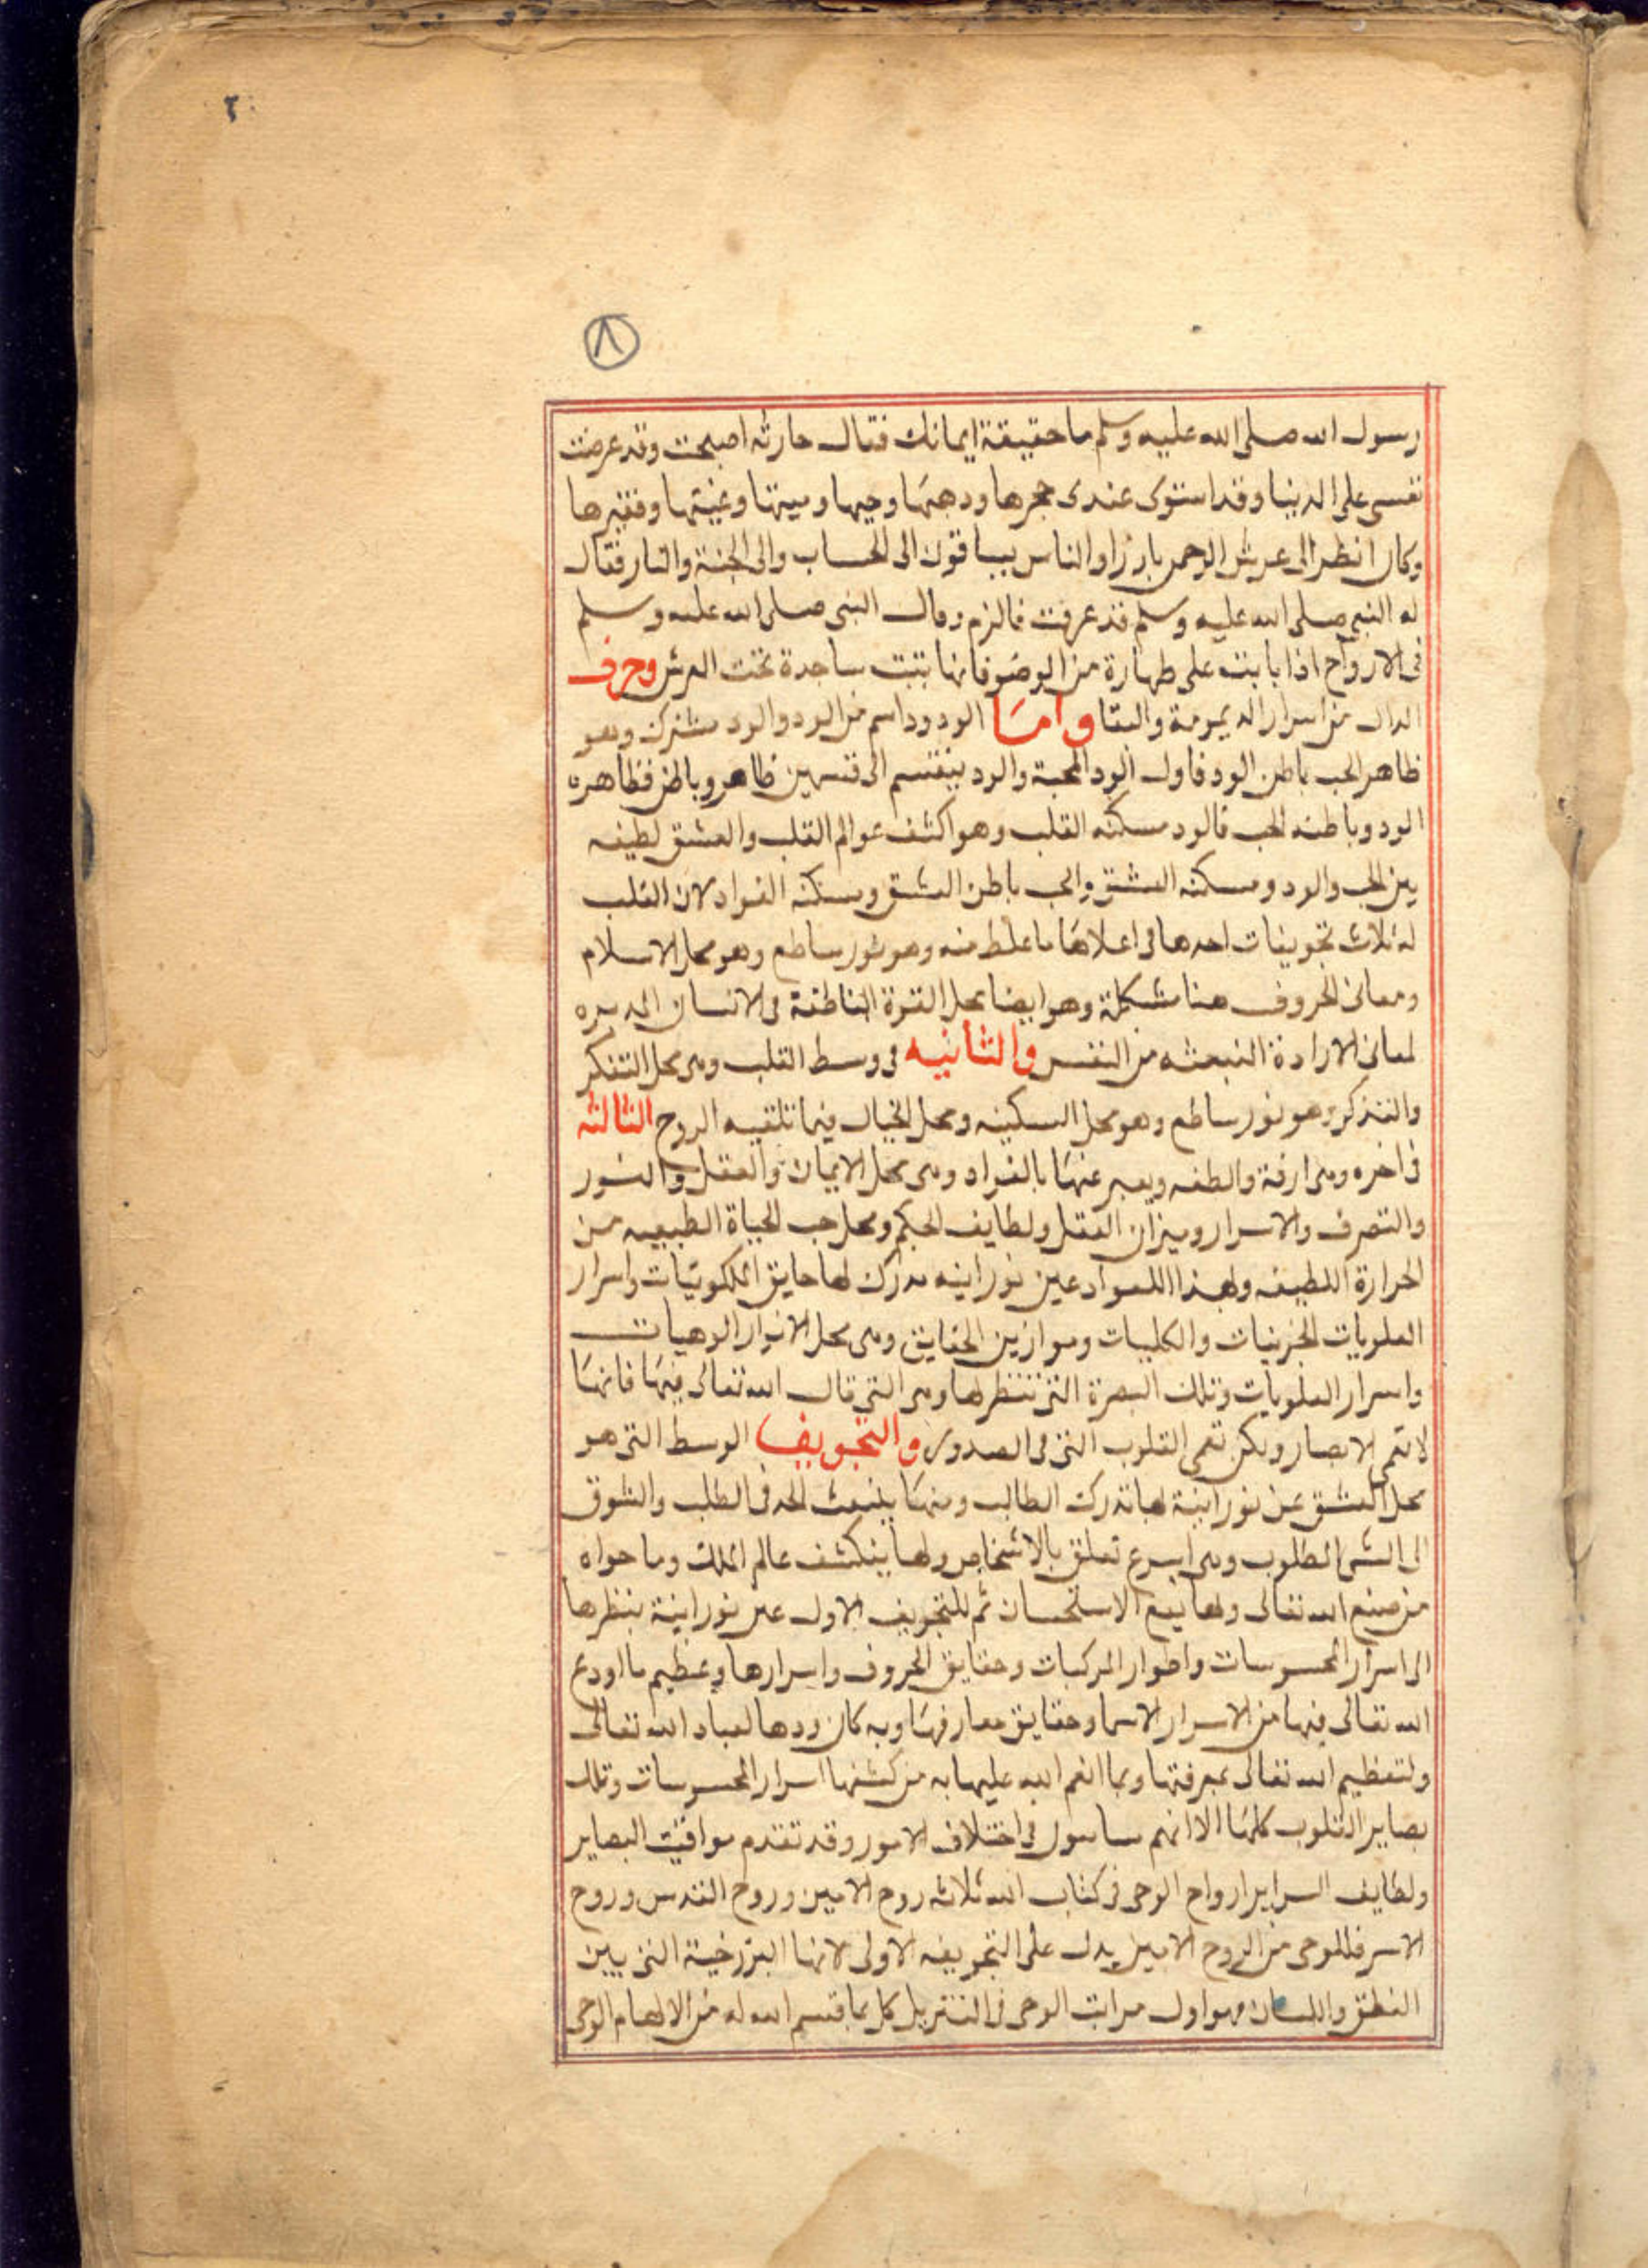 ٢
٨
رسول الله صلى الله عليه وسلم ما حقيقة ايمانك فقال حارثه اصبحت وقد عرضت
نفسى على الدنيا وقد استوى عندى حجرها ودهبها وحيها وميتها وغنيها وفقيرها
وكان انظر الى عرش الرحمن بارزا والناس يساقون الى الحساب والى الجنة والنار فقال
له النبى صلى الله عليه وسلم قد عرفت فالزم وقال النبى صلى الله عليه وسلم
فى الارواح اذا باتت على طهارة من الوضو فانها تبت ساجدة تحت العرش وحرف
الدال من اسرار الديمومة والبقا واما الودود اسم من الود والود مشترك وهو
ظاهر الحب باطن الود فاول الود المحبة والود ينقسم الى قسمين ظاهر وباطن فظاهره
الود وباطنه الحب فالود مسكنه القلب وهو اكشف عوالم القلب والعشق لطيفه
بين الحب والود ومسكنه العشق والحب باطن العشق ومسكنه الفواد لان القلب
له ثلاث تجويفات احدها فى اعلاها ما غلظ منه وهو نور ساطع وهو محل الاسلام
ومعانى الحروف هنا مشكلة وهو ايضا محل القوة الناطقة فى الانسان المدبره
لمعانى الارادة المنبعثه من النفس والثانيه فى وسط القلب وهى محل التفكر
والتذكر وهو نور ساطع وهو محل السكينه ومحل الخيال فيما تلقيه الروح الثالثه
فى اخره وهى ارقة والطفه ويعبر عنها بالفواد وهى محل الايمان والعقل والنور
والتصرف والاسرار وميزان العقل ولطايف الحكم ومحل حب الحياة الطبيعيه من
الحرارة اللطيفه ولهذا الفواد عين نورانيه تدرك لها حقايق الملكوتيات واسرار
العلويات الجزييات والكليات وموازين الحقايق وهى محل الانوار الوهبيات
واسرار العلويات وتلك البصرة التى تنتظر لها وهى التى قال الله تعالى فيها فانها
لا تعمى الابصار ولكن تعمى القلوب التى فى الصدور والتجويف الوسط التى هو
محل العشق عين نورانية لها تدرك الطالب ومنها ينبعث الحد فى الطلب والشوق
الى الشى المطلوب وهى اسرع تعلق بالاشخاص ولها ينكشف عالم الملك وما حواه
من صنع الله تعالى ولها يقع الاستحسان ثم للتجويف الاول عين نورانية ينظر ها
الى اسرار المحسوسات واطوار المركبات وحقايق الحروف واسرارها وعظيم ما اودع
الله تعالى فيها من الاسرار الاسما وحقايق معارفها وبه كان ودها لعباد الله تعالى
ولتعظيم الله تعالى بمعرفتها وبما انعم الله عليها به من كشفها اسرار المحسوسات وتلك
بصاير القلوب كلها الا انهم فى اختلاف الامور وقد تقدم مواقيت البصاير
ولطايف السراير ارواح الوحى فى كتاب الله ثلاثه روح الامين وروح القدس وروح
الامر فالوحى من الروح الامين يدل على التجويفه الاولى لانها البرزخية التى بين
النطق واللسان وهو اول مراتب الوحى فى التنزيل كل بما قسم الله له من الالهام الوحى